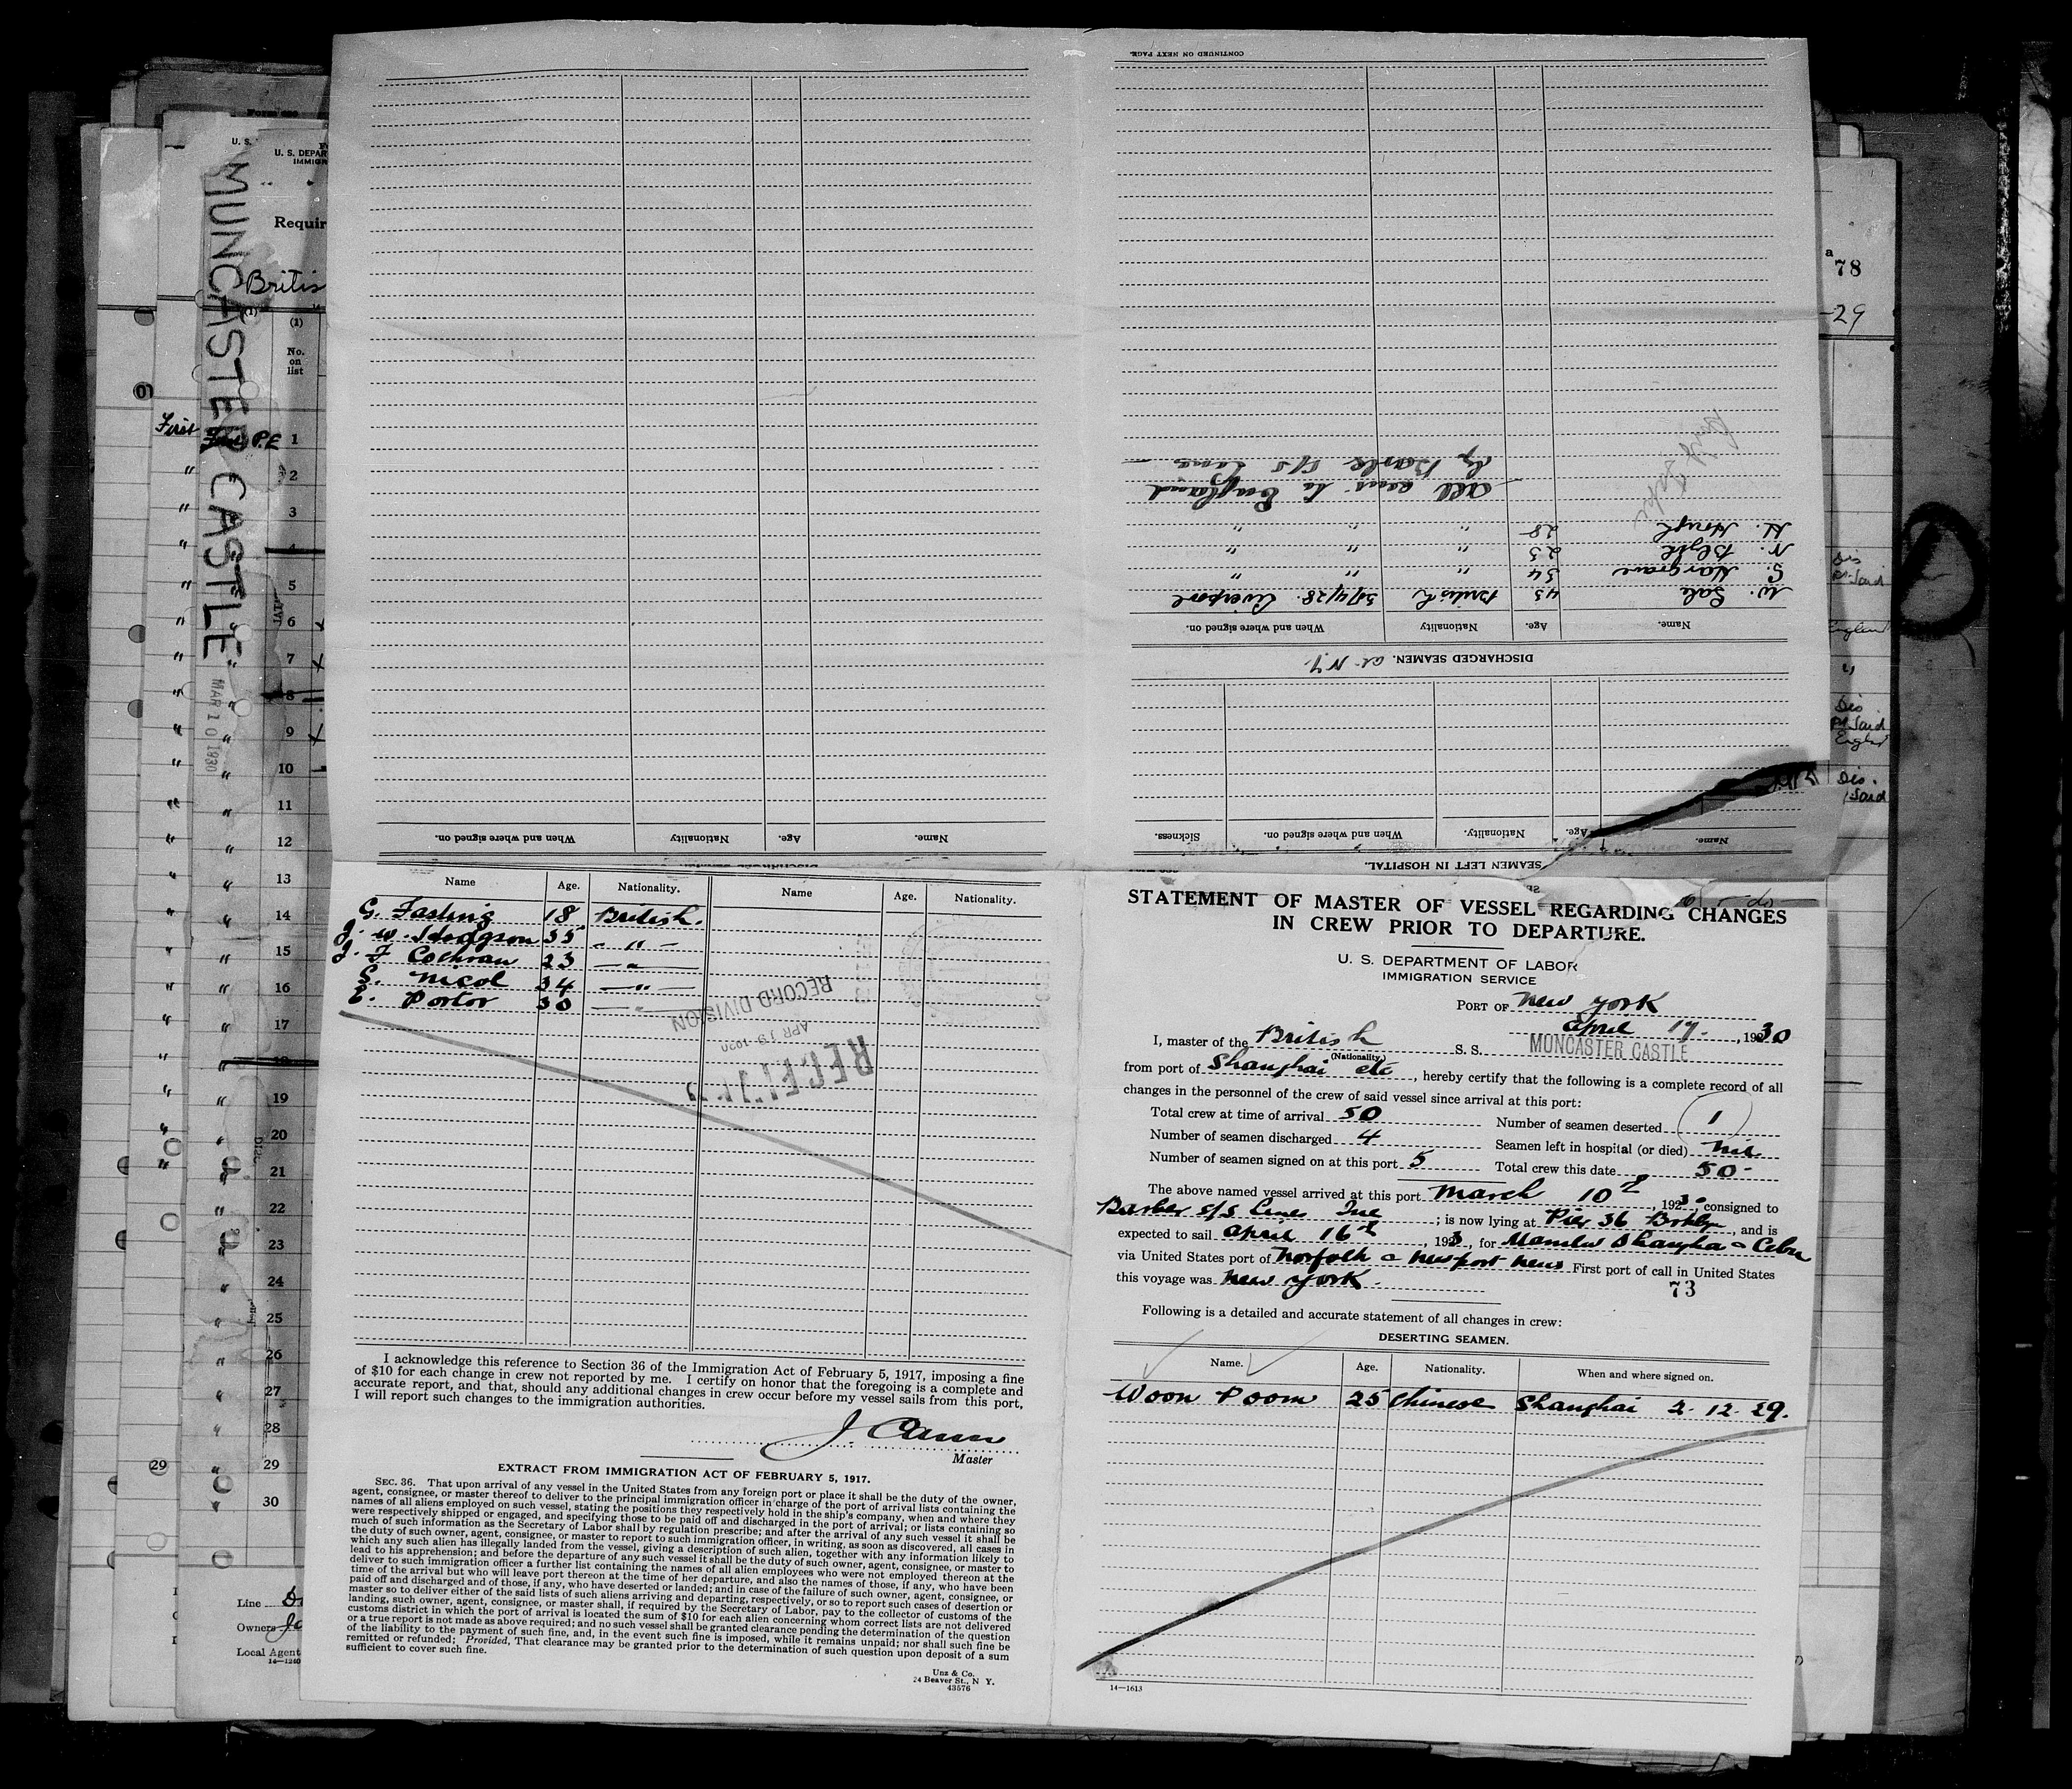 STATEMENT OF MASTER OF VESSEL REGARDING CHANGES
IN CREW PRIOR TO DEPARTURE.
U. S. DEPARTMENT OF LABOR
IMMIGRATION SERVICE
PORT OF New York
April 17, 1930
I, master of the British S. S. MONCASTER CASTLE
(Nationality)
from port of Shanghai etc, hereby certify that the following is a complete record of all
changes in the personnel of the crew of said vessel since arrival at this port:
Total crew at time of arrival 50 Number of seamen deserted 1
Number of seamen discharged 4 Seamen left in hospital (or died) nil
Number of seamen signed on at this port 5 Total crew this date 50-
The above named vessel arrived at this port March 10th, 1930, consigned to
Barber s/s Lines Inc; is now lying at Pier 36 Brklyn, and is
expected to sail April 16th, 193, for Manila Shangha Cebu
via United States port of Norfolk Newport News First port of call in United States
this voyage was New York.
73
Following is a detailed and accurate statement of all changes in crew:
DESERTING SEAMEN.
Name. Age. Nationality. When and where signed on.
Woon Poom 25 Chinese Shanghai 2-12-29.
14—1613
SEAMEN LEFT IN HOSPITAL.
Name. Age. Nationality. When and where signed on. Sickness.
DISCHARGED SEAMEN. at N.Y.
Name. Age. Nationality When and where signed on.
W. Gale 45 British 30/4/28. Liverpool
S. Hargrave 34 " " "
N. Blyth 23 " " "
H. Hough 28 " " "
All going to England
by Barble S/S Line
CONTINUED ON NEXT PAGE.
DISCHARGED SEAMEN
Name. Age. Nationality When and where signed on.
Name Age. Nationality. Name Age. Nationality.
G. Fasting 18 British.
J. W. Hodgson 35 "
J. F Cochran 23 "
G. Nicol 34 "
E. Porter 30 "
RECEIVED
APR 19 1930
RECORD DIVISION
I acknowledge this reference to Section 36 of the Immigration Act of February 5, 1917, imposing a fine
of $10 for each change in crew not reported by me. I certify on honor that the foregoing is a complete and
accurate report, and that, should any additional changes in crew occur before my vessel sails from this port,
I will report such changes to the immigration authorities.
Master
EXTRACT FROM IMMIGRATION ACT OF FEBRUARY 5, 1917.
SEC. 36. That upon arrival of any vessel in the United States from any foreign port or place it shall be the duty of the owner,
agent, consignee, or master thereof to deliver to the principal immigration officer in charge of the port of arrival lists containing the
names of all aliens employed on such vessel, stating the positions they respectively hold in the ship's company, when and where they
were respectively shipped or engaged, and specifying those to be paid off and discharged in the port of arrival; or lists containing so
much of such information as the Secretary of Labor shall by regulation prescribe; and after the arrival of any such vessel it shall be
the duty of such owner, agent, consignee, or master to report to such immigration officer, in writing, as soon as discovered, all cases in
which any such alien has illegally landed from the vessel, giving a description of such alien, together with any information likely to
lead to his apprehension; and before the departure of any such vessel it shall be the duty of such owner, agent, consignee, or master to
deliver to such immigration officer a further list containing the names of all alien employees who were not employed thereon at the
time of the arrival but who will leave port thereon at the time of her departure, and also the names of those, if any, who have been
paid off and discharged and of those, if any, who have deserted or landed; and in case of the failure of such owner, agent, consignee, or
master so to deliver either of the said lists of such aliens arriving and departing, respectively, or so to report such cases of desertion or
landing, such owner, agent, consignee, or master shall, if required by the Secretary of Labor, pay to the collector of customs of the
customs district in which the port of arrival is located the sum of $10 for each alien concerning whom correct lists are not delivered
or a true report is not made as above required; and no such vessel shall be granted clearance pending the determination of the question
of the liability to the payment of such fine, and, in the event such fine is imposed, while it remains unpaid; nor shall such fine be
remitted or refunded; Provided, That clearance may be granted prior to the determination of such question upon deposit of a sum
sufficient to cover such fine.
Unz & Co.
24 Beaver St., N Y.
43576
MUNCASTER CASTLE
MAR 10 1930
U. S. DEPAR
IMMIGR
Requir
Britis
(1)
No.
on
list
First P.E 1
2
3
4
5
6
7
8
9
10
11
12
13
14
15
16
17
18
19
20
21
22
23
24
25
26
27
28
29
30
29
Line
Owners
Local Agent
14—1240
78
-29
Dis
Pt Said
England
"
Dis
Pt Said
Dis.